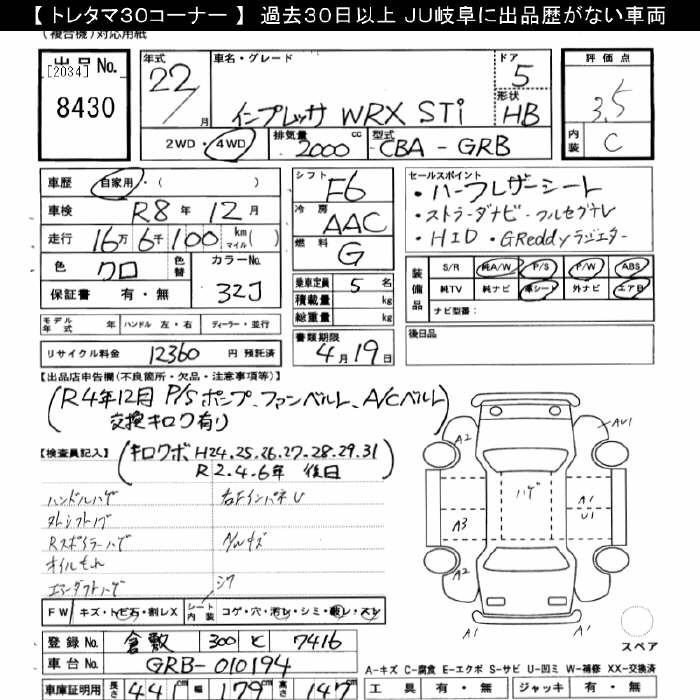 【トレタマ30コーナー】 過去30日以上 JU岐阜に出品歴がない車両
(複合機)対応用紙
出品No. [2034] 8430
年式 22/月
車名・グレード インプレッサ WRX STi
ドア 5
形状 HB
評価点 3.5
内装 C
2WD・4WD
排気量 2000 cc
型式 CBA-GRB
車歴 自家用・( )
車検 R8年12月
走行 16万6千100 km マイル( )
色 クロ 色替
カラーNo. 32J
保証書 有・無
シフト F6
冷房 AAC
燃料 G
乗車定員 5名
積載量 kg
総重量 kg
セールスポイント
・ハーフレザーシート
・ストラーダナビ・フルセグTV
・HID ・GReddyラジエター
装備品 S/R 純A/W P/S P/W ABS
純TV 純ナビ 革シート 外ナビ エアB
ナビ型番:
モデル年式 年 ハンドル 左・右 ディーラー・並行
リサイクル料金 12360 円 預託済
書類期限 4月19日
後日品
【出品店申告欄(不良箇所・欠品・注意事項等)】
(R4年12月 P/Sポンプ、ファンベルト、A/Cベルト
交換キロク有り)
【検査員記入】
(キロクボ H24.25.26.27.28.29.31
R2.4.6年 後日)
ハンドルハゲ
右Fインパネ U
Rスポイラーハゲ
オイルもれ
シワ
FW キズ・トビ石・割レX
シート内装 コゲ・穴・汚レ・シミ・破レ・スレ
登録No. 倉敷 300 と 7416
車台No. GRB-010194
車庫証明用 長さ 441cm 幅 179cm 高さ 147cm
A2
AU1
ハゲ
A1
U1
A3
A2
A1
A1
スペア
A-キズ C-腐食 E-エクボ S-サビ U-凹ミ W-補修 XX-交換済
工具 有・無 ジャッキ 有・無